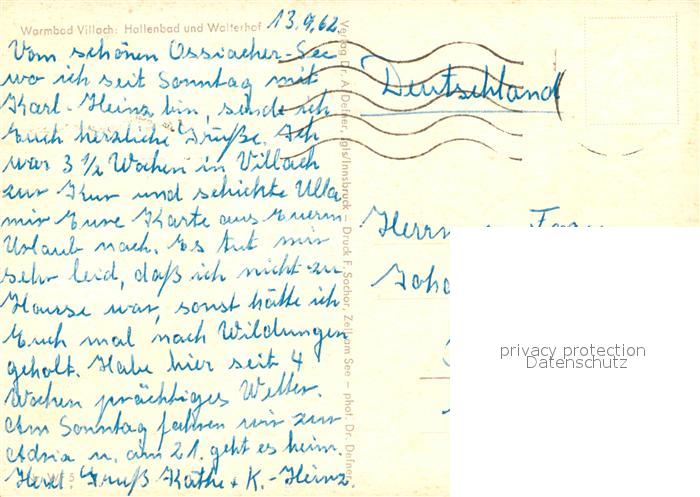 Warmbad Villach: Hallenbad und Walterhof
13.9.62.
Vom schönen Ossiacher-See
wo ich seit Sonntag mit
Karl-Heinz bin, sende ich
Euch herzliche Grüße. Ich
war 3 1/2 Wochen in Villach
zur Kur und schickte Ulla
mir Eure Karte aus Eurem
Urlaub nach. Es tut mir
sehr leid, daß ich nicht zu
Hausse war, sonst hätte ich
Euch mal nach Wildungen
geholt. Habe hier seit 4
Wochen prächtiges Wetter.
Am Sonntag fahren wir zur
Adria u. am 21. geht es heim.
Herzl. Gruß Käthe + K.-Heinz.
Verlag Dr. A. Defner, Igls/Innsbruck – Druck F. Sochor, Zell am See – phot. Dr. Defner
Deutschland
Herrn
Joha
privacy protection
Datenschutz